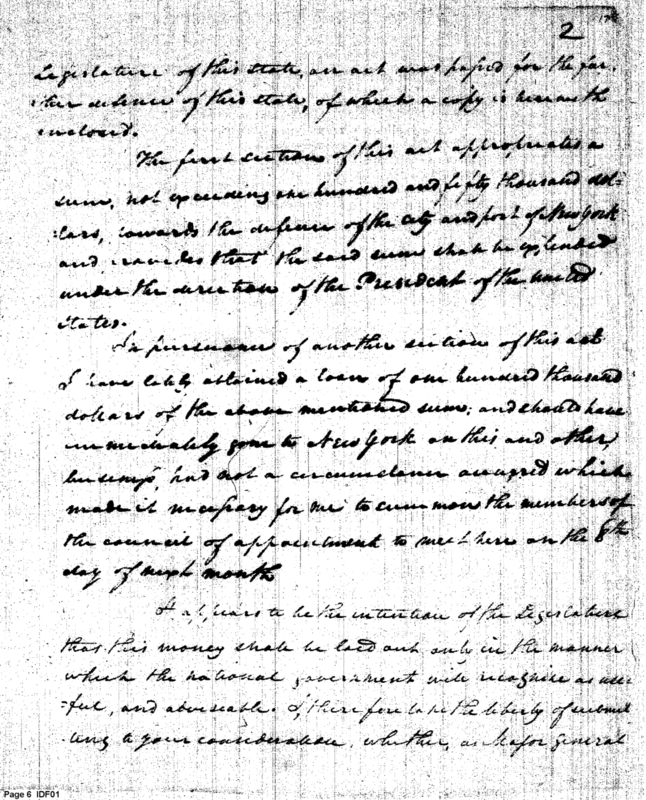 2
Legislature of this state, an act was passed for the fur-
ther defence of this state, of which a copy is herewith
inclosed.
The first section of this act appropriates a
sum, not exceeding one hundred and fifty thousand dol-
lars, towards the defence of the city and port of New York
and provides that the said sum shall be expended
under the direction of the President of the United
States.
In pursuance of another section of this act
I have lately obtained a loan of one hundred thousand
dollars of the above mentioned sum; and should have
immediately gone to New York on this and other
business, had not a circumstance occurred which
made it necessary for me to summon the members of
the council of appointment to meet here on the 8th
day of next month
It appears to be the intention of the Legislature
that this money shall be laid out only in the manner
which the national government will recognize as use-
=ful, and adviseable. I, therefore take the liberty of submit
ting to your consideration, whether, as Major General
Page 6 IDF01